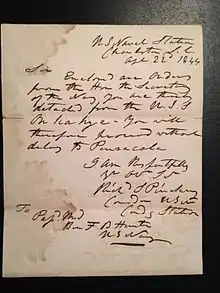 U.S. Naval Station
Charleston S.C.
Sir
Enclosed are orders
from the Hon the Secretary
of the Navy You are thereby
detached from the U.S.S.
You will
therefore proceed without
delay to Pensacola
I am Respectfully
Yr Ob St
Pinckney
Comdr
Comdg Station
To
Pas Mid
F B
US Navy